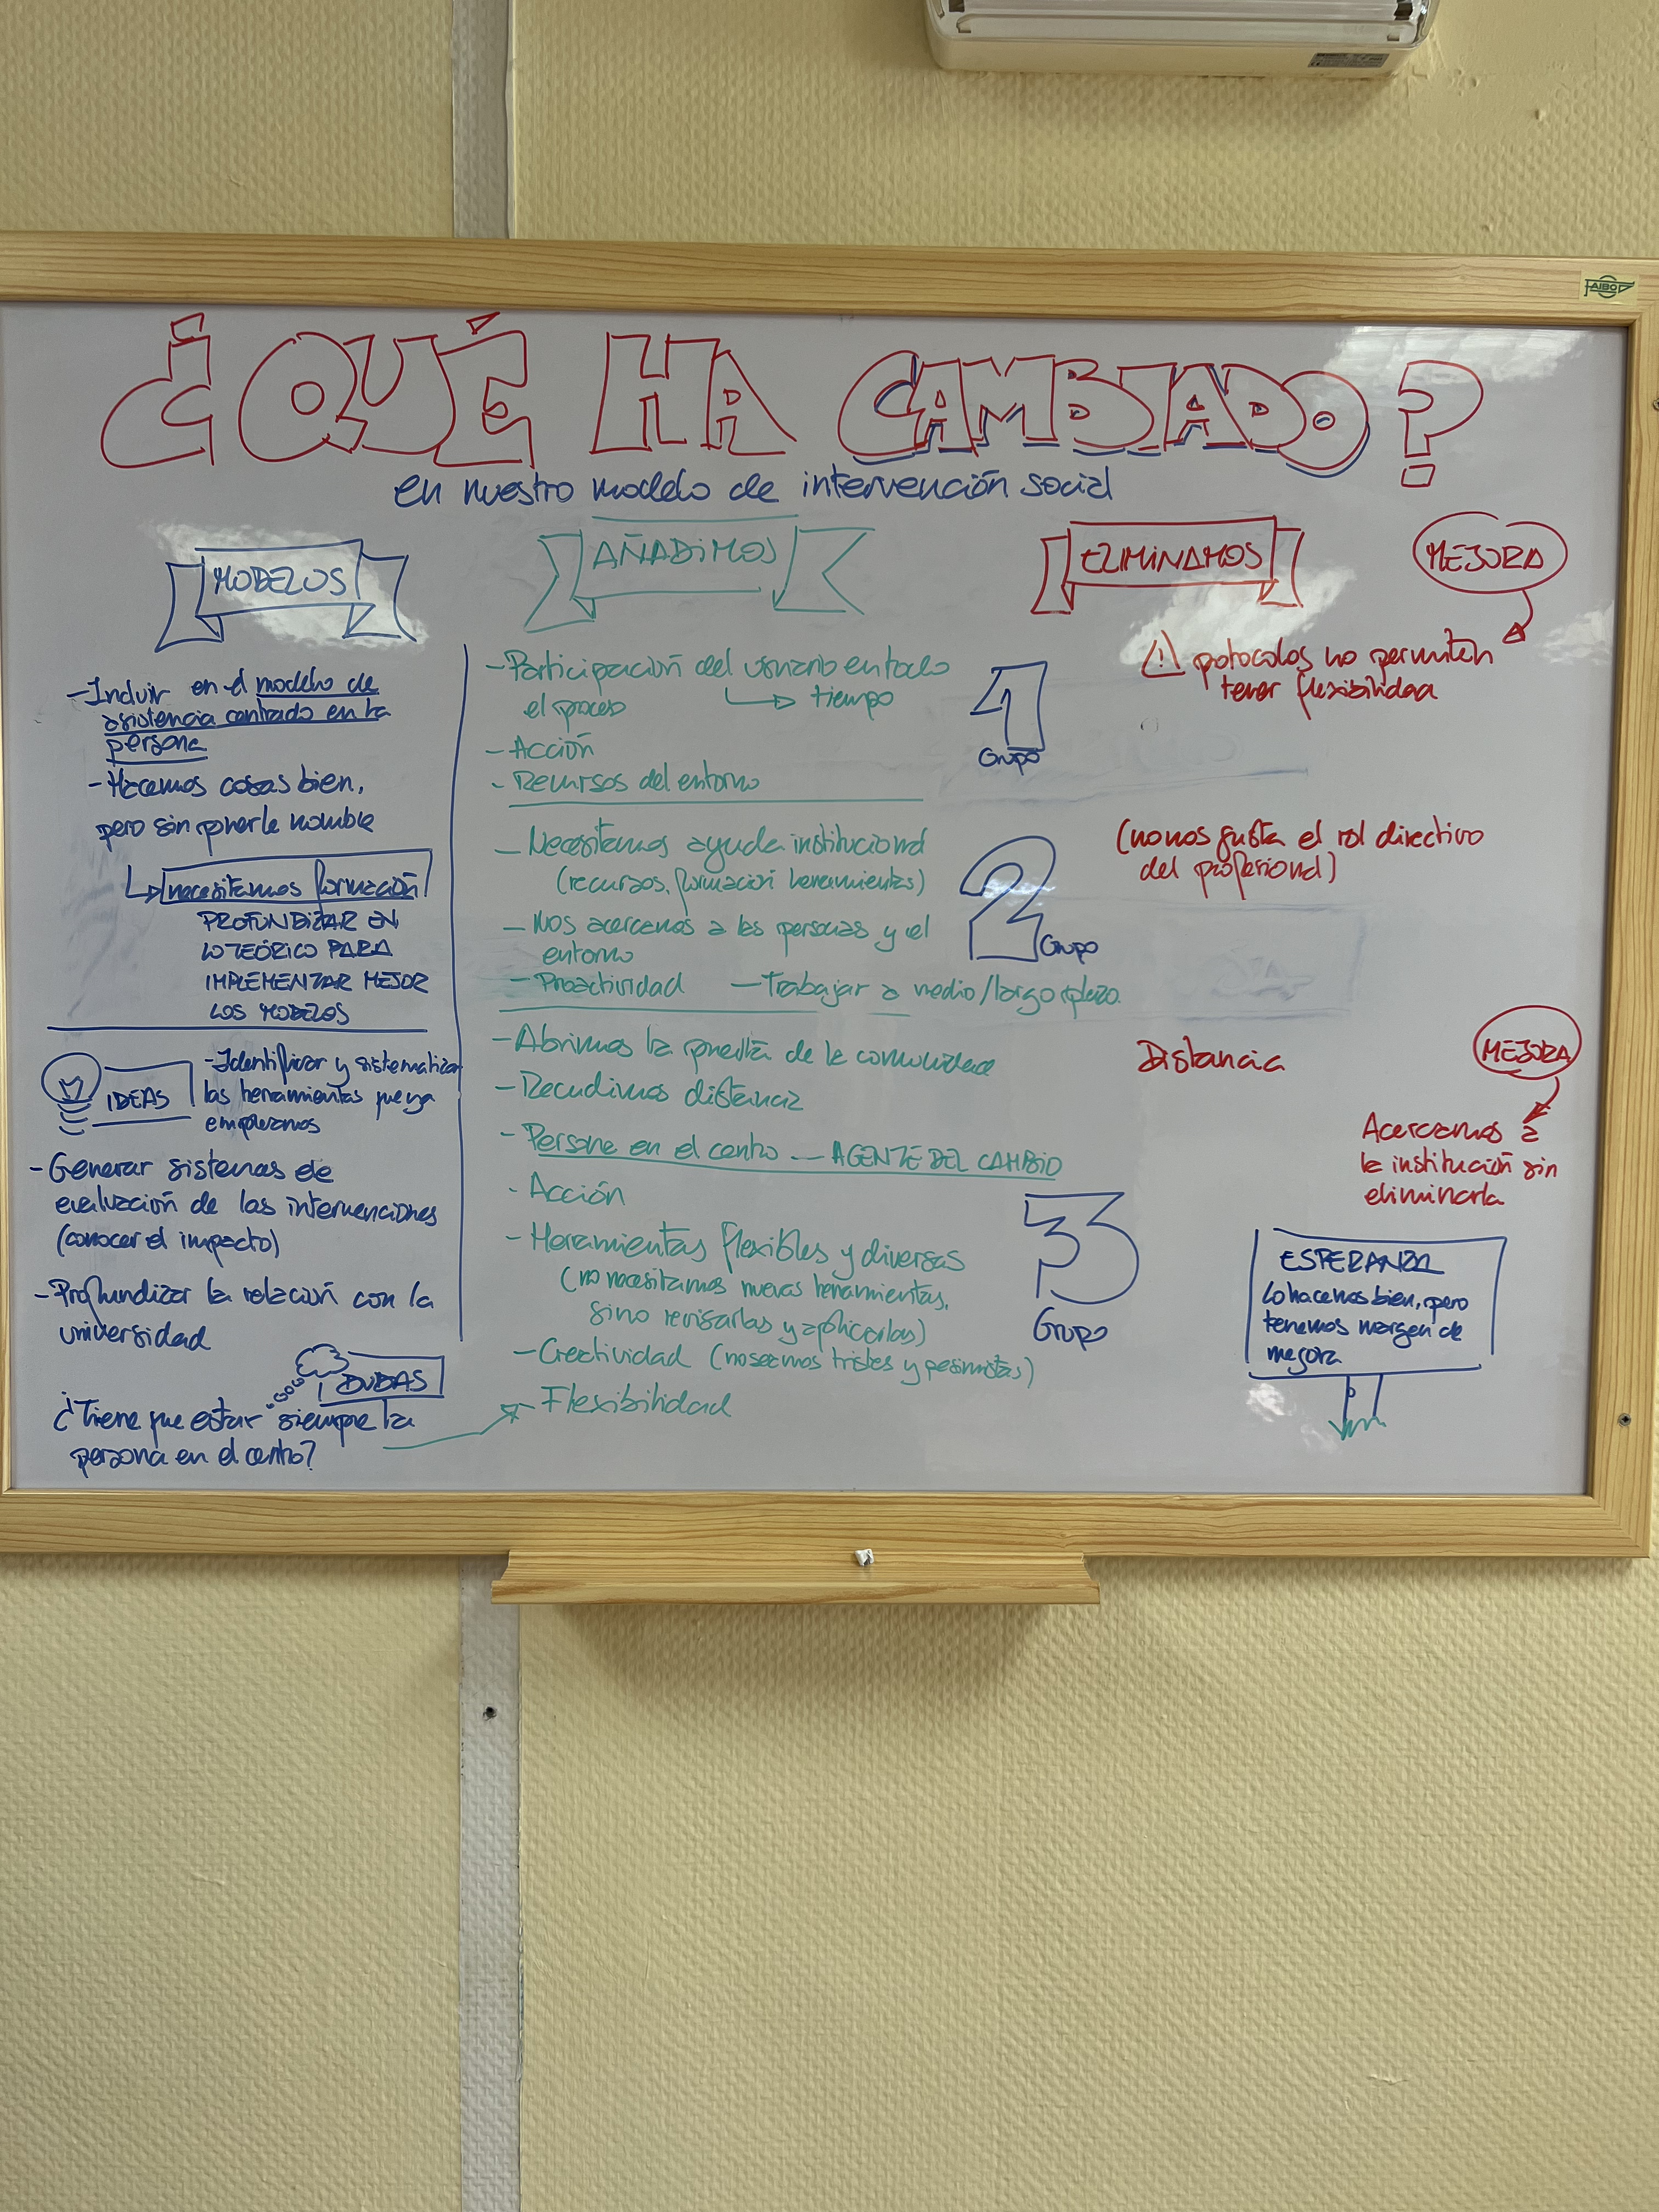 ¿QUÉ HA CAMBIADO?
en nuestro modelo de intervención social
MODELOS
-Incluir en el modelo de
asistencia centrado en la
persona
-Hacemos cosas bien,
pero sin ponerle nombre
necesitamos formación
PROFUNDIZAR EN
LO TEÓRICO PARA
IMPLEMENTAR MEJOR
LOS MODELOS
IDEAS
-Identificar y sistematizar
las herramientas que ya
empleamos
-Generar sistemas de
evaluación de las intervenciones
(conocer el impacto)
-Profundizar la relación con la
universidad
DUDAS
¿Tiene que estar siempre la
persona en el centro?
AÑADIMOS
-Participación del usuario en todo
el proceso → tiempo
-Acción
-Recursos del entorno
1
Grupo
-Necesitamos ayuda institucional
(recursos, formación herramientas)
-Nos acercamos a las personas y el
entorno
-Proactividad -Trabajar a medio/largo plazo.
2
Grupo
-Abrimos la puerta de la comunidad
-Recudimos distancia
-Persona en el centro -- AGENTE DEL CAMBIO
-Acción
-Herramientas flexibles y diversas
(no necesitamos nuevas herramientas,
sino revisarlas y aplicarlas)
-Creatividad (no seamos tristes y pesimistas)
-Flexibilidad
3
Grupo
ELIMINAMOS
MEJORA
potocolos no permiten
tener flexibilidad
(no nos gusta el rol directivo
del profesional)
Distancia
MEJORA
Acercarnos a
la institución sin
eliminarla
ESPERANZA
Lo hacemos bien, pero
tenemos margen de
mejora
FAIBO